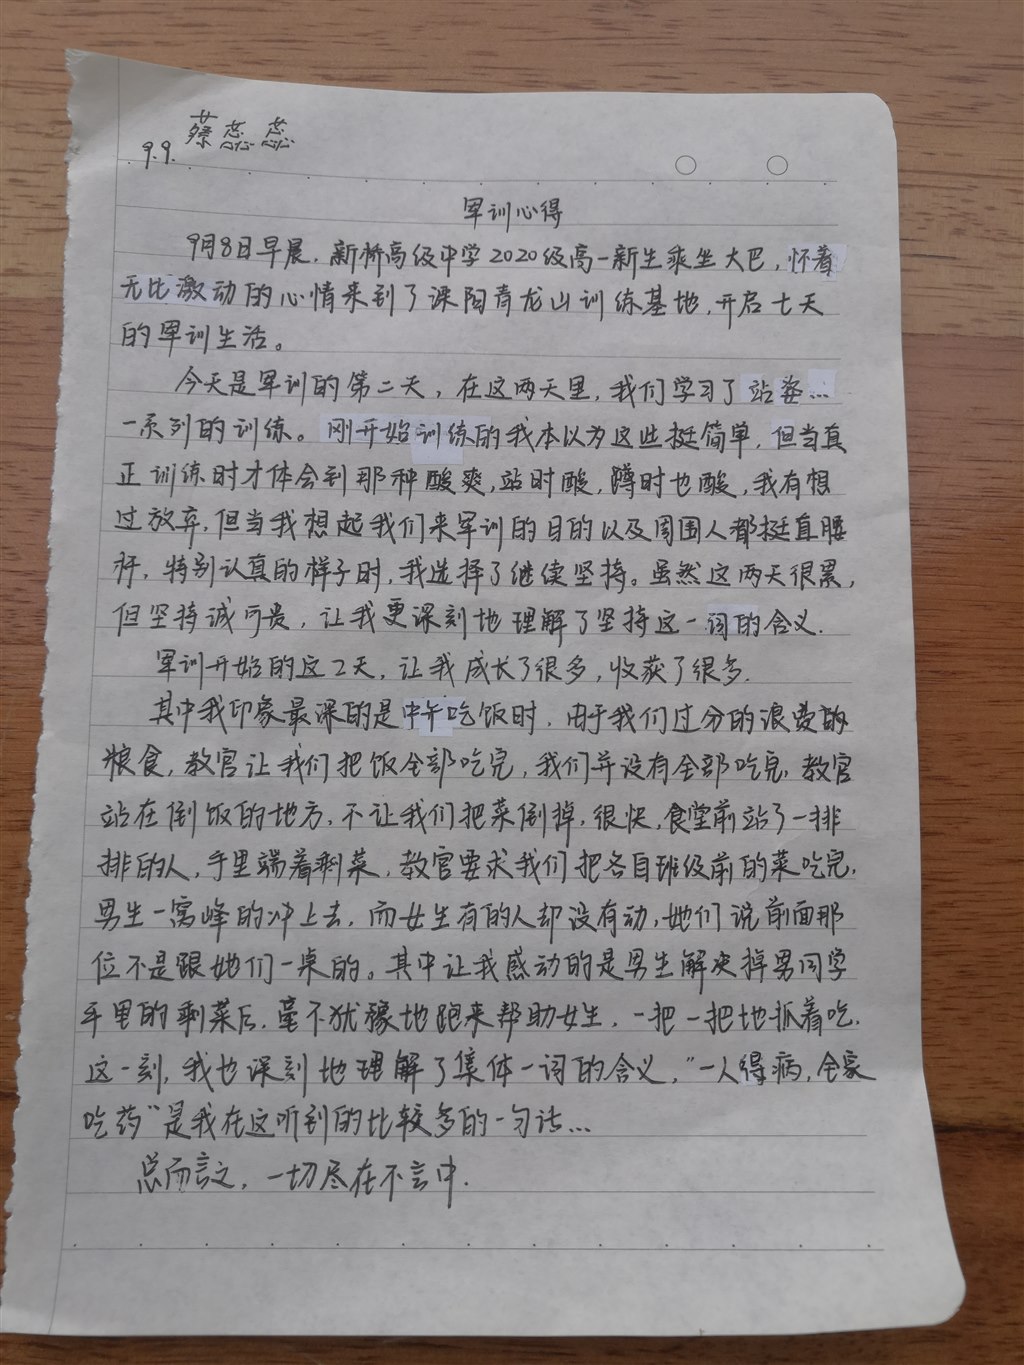 蔡蕊蕊
9.9.
军训心得
9月8日早晨，新桥高级中学2020级高一新生乘坐大巴，怀着
无比激动的心情来到了溧阳青龙山训练基地，开启七天
的军训生活。
今天是军训的第二天，在这两天里，我们学习了站姿…
一系列的训练。刚开始训练的我本以为这些挺简单，但当真
正训练时才体会到那种酸爽，站时酸，蹲时也酸，我有想
过放弃，但当我想起我们来军训的目的以及周围人都挺直腰
杆，特别认真的样子时，我选择了继续坚持。虽然这两天很累，
但坚持诚可贵，让我更深刻地理解了坚持这一词的含义．
军训开始的这2天，让我成长了很多，收获了很多．
其中我印象最深的是中午吃饭时，由于我们过分的浪费的
粮食，教官让我们把饭全部吃完，我们并没有全部吃完，教官
站在倒饭的地方，不让我们把菜倒掉，很快，食堂前站了一排
排的人，手里端着剩菜，教官要求我们把各自班级前的菜吃完，
男生一窝峰的冲上去，而女生有的人却没有动，她们说前面那
位不是跟她们一桌的。其中让我感动的是男生解决掉男同学
手里的剩菜后，毫不犹豫地跑来帮助女生，一把一把地抓着吃，
这一刻，我也深刻地理解了集体一词的含义，"一人得病，全家
吃药"是我在这听到的比较多的一句话…
总而言之，一切尽在不言中．